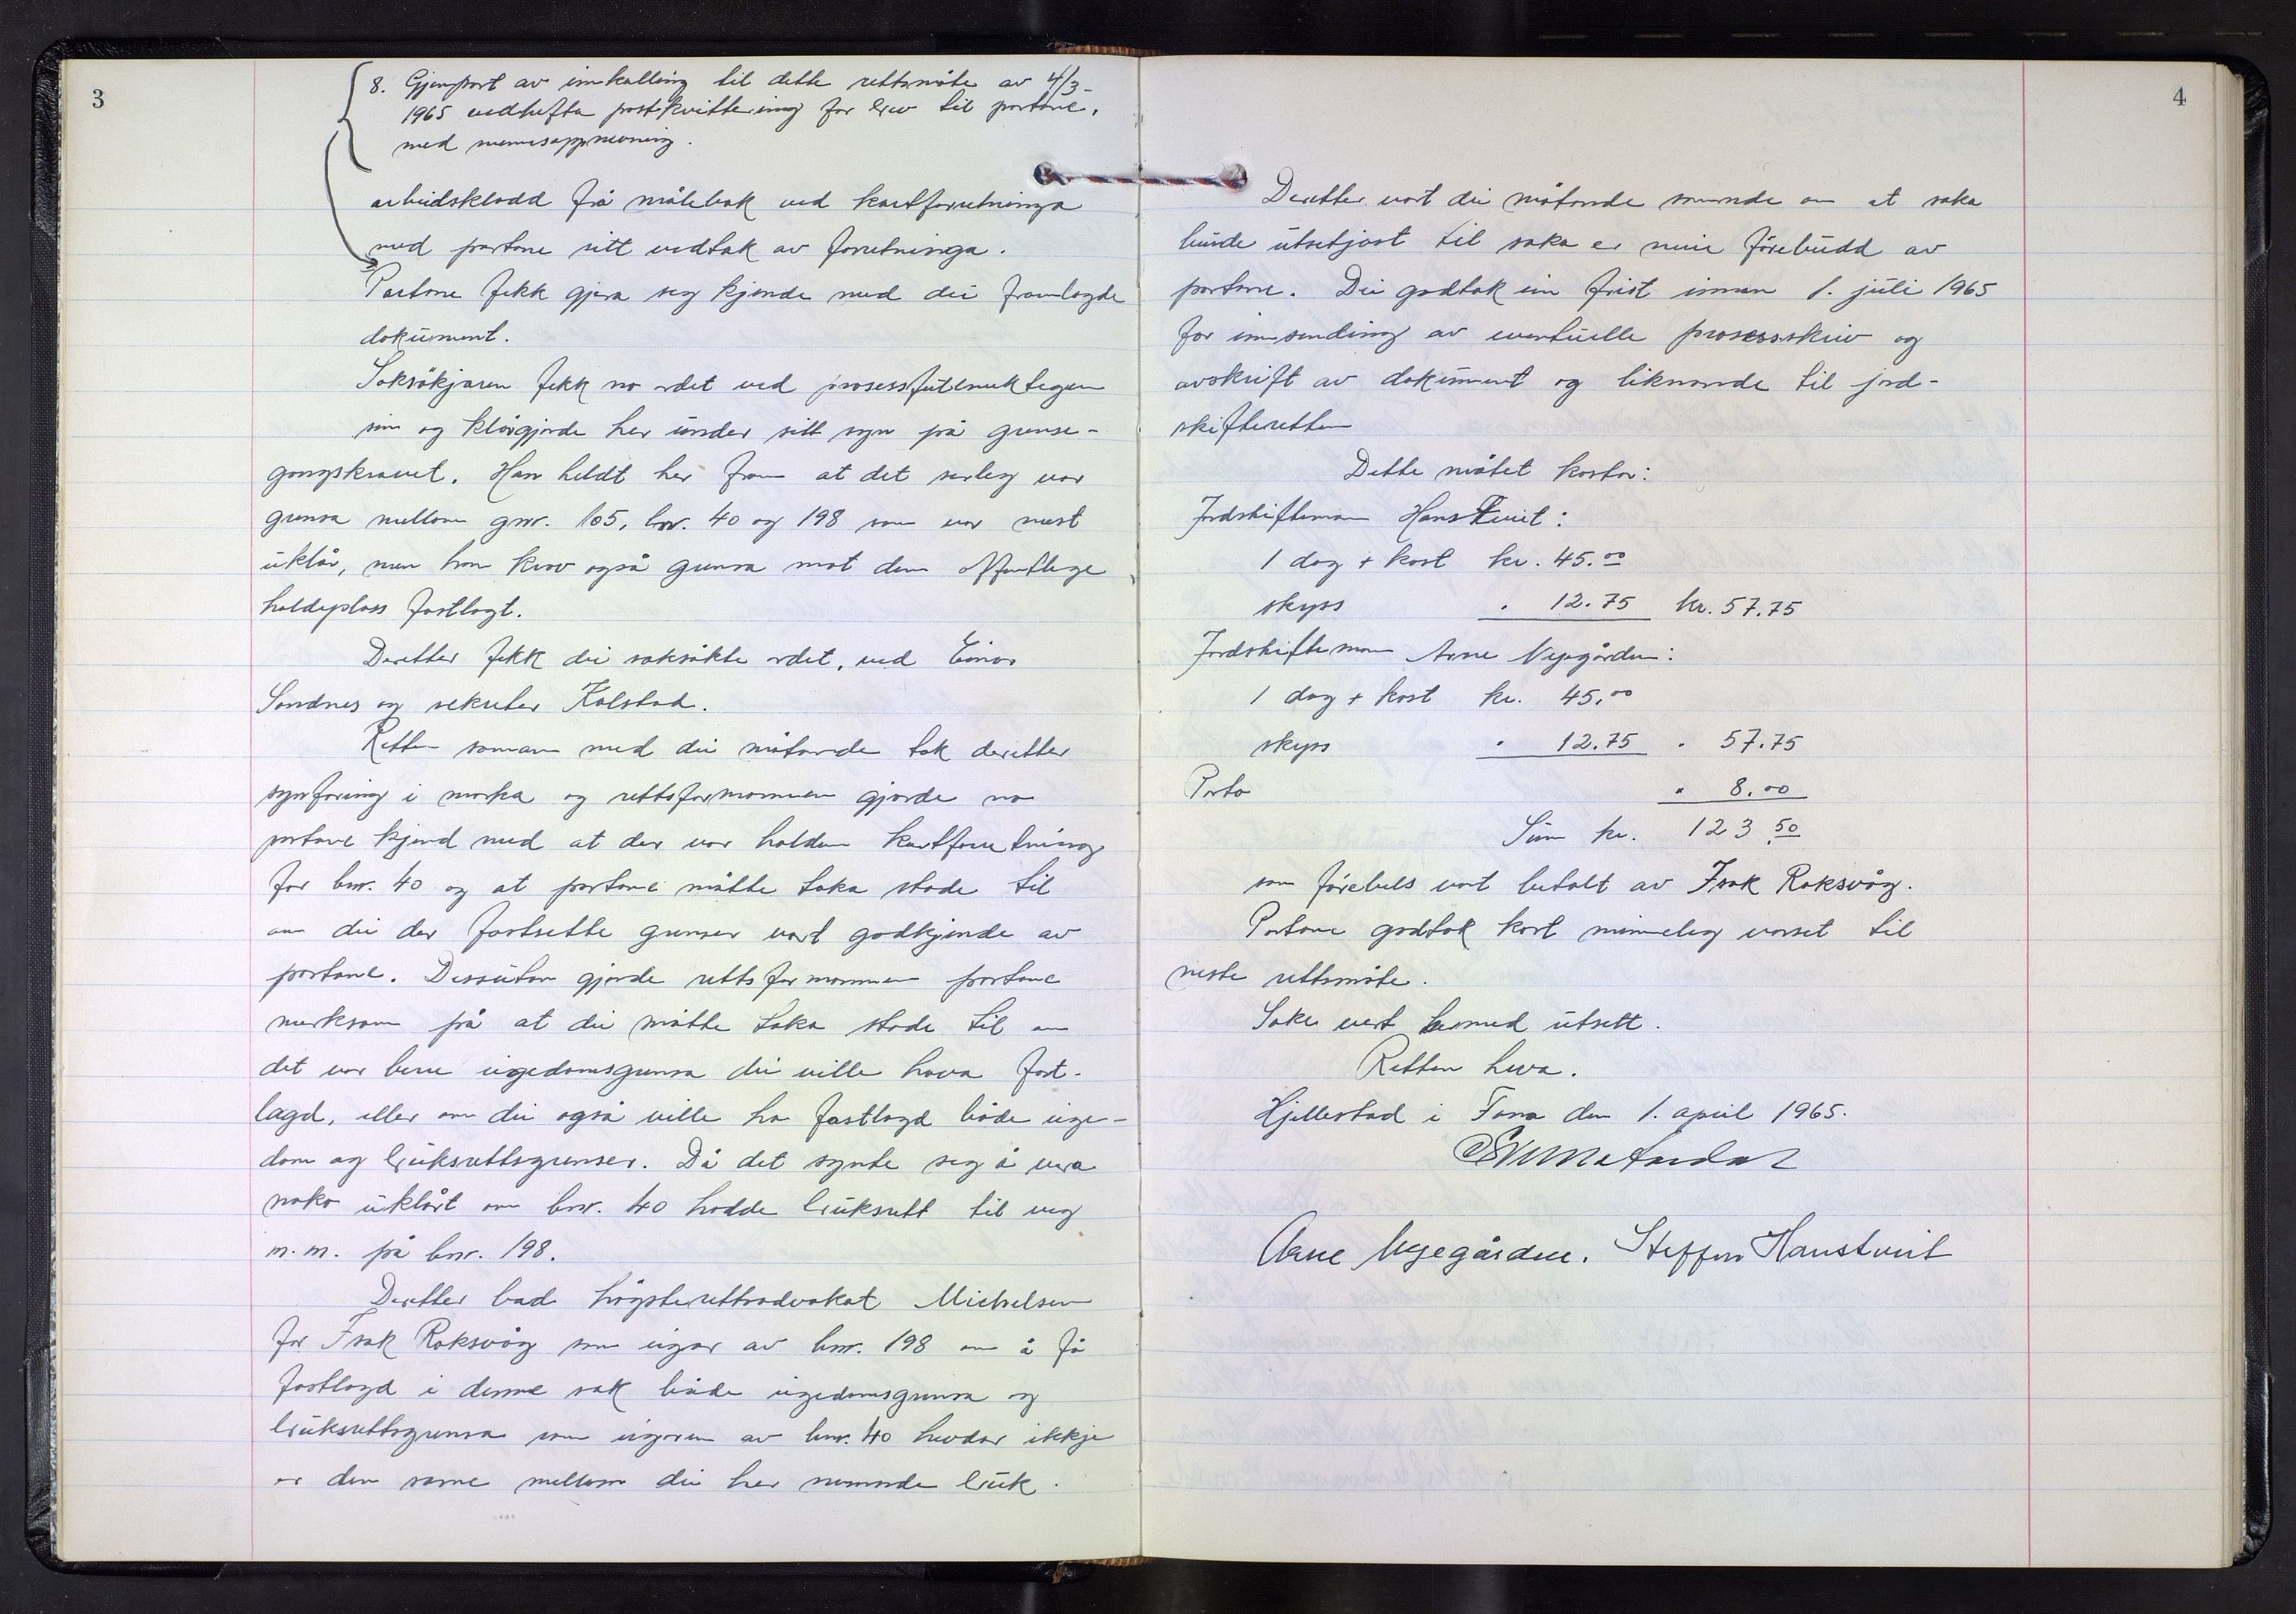 3
8. Gjenpart av innkalling til dette rettsmøte av 4/3-
1965 vedhefta postkvittering for brev til partane,
med mannsoppnevning.
arbeidskladd frå målebok ved kartforretninga
med partane sitt vedtak av forretninga.
Partane fekk gjera seg kjende med dei framlagde
dokument.
Saksøkjaren fekk no ordet ved prosessfullmektigen
sin og klårgjorde her under sitt syn på grense-
gangskravet. Han heldt her fram at det serleg var
grensa mellom gnr. 105, bnr. 40 og 198 som var mest
uklår, men han krav også grensa mot den offentlege
haldeplass fastlagt.
Deretter fekk dei saksøkte ordet, ved Einar
Sandnes og sekretær Kolstad.
Retten saman med dei møtande tok deretter
synfaring i marka og rettsformannen gjorde no
partane kjend med at der var halden kartforretning
for bnr. 40 og at partane måtte taka stode til
om dei der fastsette grenser vart godkjende av
partane. Dessutan gjorde rettsformannen partane
merksam på at dei måtte taka stode til om
det var berre eigedomsgrensa dei ville hava fast-
lagd, eller om dei også ville ha fastlagd både eige-
dom og bruksrettsgrenser. Då det synte seg å vera
noko uklårt om bnr. 40 hadde bruksrett til veg
m.m. på bnr. 198.
Deretter bad høgsterettsadvokat Michelsen
for Isak Roksvåg som eigar av bnr. 198 om å få
fastlagd i denne sak både eigedomsgrensa og
bruksrettsgrensa som eigaren av bnr. 40 hevdar ikkje
er den same mellom dei her nemnde bruk.
4
Deretter vart dei møtande samde om at saka
burde utsetjast til saka er meir førebudd av
partane. Dei godtok ein frist innan 1. juli 1965
for innsending av eventuelle prosesskriv og
avskrift av dokument og liknande til jord-
skifteretten
Dette møtet kostar:
Jordskiftemann Hanstveit:
1 dag + kost kr. 45.00
skyss " 12.75 kr. 57.75
Jordskiftemann Arne Nygården:
1 dag + kost kr. 45,00
skyss " 12.75 " 57.75
Porto " 8.00
Sum kr. 123.50
som førebels vart betalt av Isak Roksvåg.
Partane godtok kort minneleg varsel til
neste rettsmøte.
Saka vert hermed utsett.
Retten heva.
Hjellestad i Fana den 1. april 1965.
Arne Nygården. Steffen Hanstveit